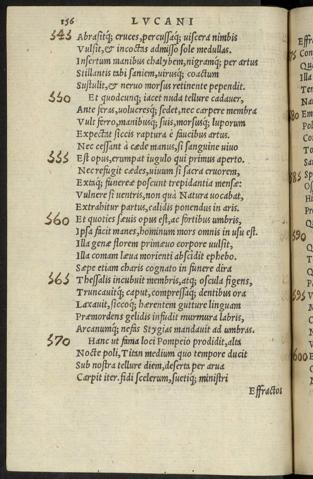 156 LVCANI
545 Abrasitq́; cruces, percussaq́; uiscera nimbis
Vulsit, & incoctas admisso sole medullas.
Insertum manibus chalybem, nigramq́; per artus
Stillantis tabi saniem, uirusq́; coactum
Sustulit, & neruo morsus retinente pependit.
550 Et quodcunq; iacet nuda tellure cadauer,
Ante feras, uolucresq́; sedet, nec carpere membra
Vult ferro, manibusq́; suis, morsusq́; luporum
Expectat siccis raptura è faucibus artus.
Nec cessant à cæde manus, si sanguine uiuo
555 Est opus, erumpat iugulo qui primus aperto.
Nec refugit cædes, uiuum si sacra cruorem,
Extaq́; funereæ poscunt trepidantia mensæ:
Vulnere si uentris, non quà Natura uocabat,
Extrahitur partus, calidis ponendus in aris.
560 Et quoties sæuis opus est, ac fortibus umbris,
Ipsa facit manes, hominum mors omnis in usu est.
Illa genæ florem primæuo corpore uulsit,
Illa comam læua morienti abscidit ephebo.
Sæpe etiam charis cognato in funere dira
565 Thessalis incubuit membris, atq; oscula figens,
Truncauitq́; caput, compressaq́; dentibus ora
Laxauit, siccoq́; hærentem gutture linguam
Præmordens gelidis infudit murmura labris,
Arcanumq́; nefas Stygias mandauit ad umbras.
570 Hanc ut fama loci Pompeio prodidit, alta
Nocte poli, Titan medium quo tempore ducit
Sub nostra tellure diem, deserta per arua
Carpit iter. fidi scelerum, suetiq́; ministri
Effractos